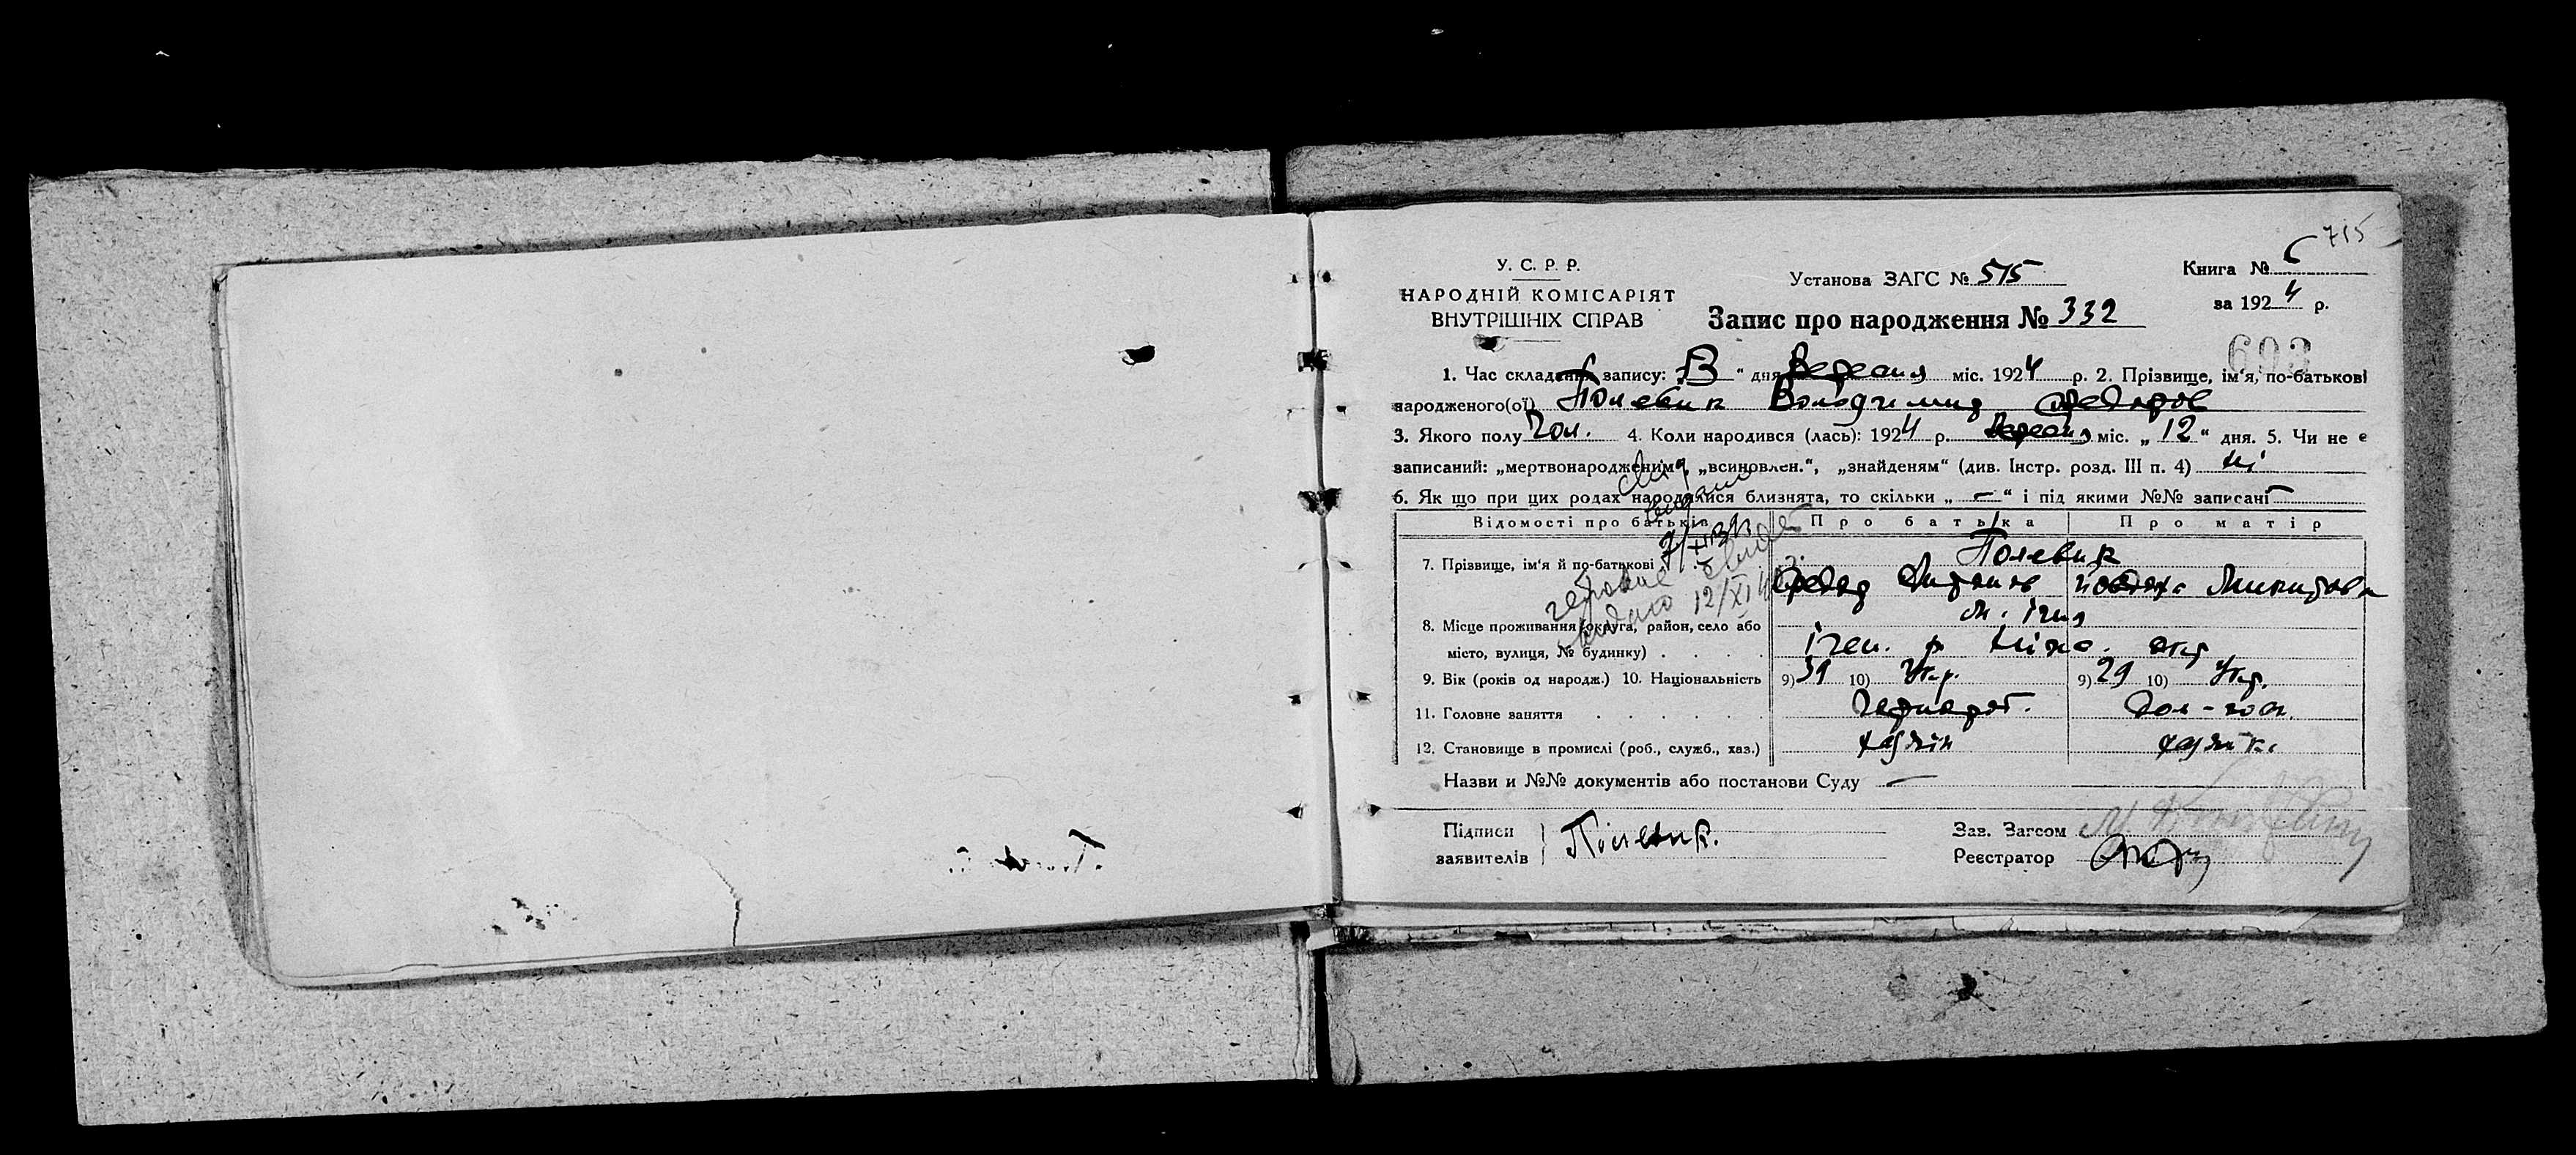 715
У. С. Р. Р.
НАРОДНІЙ КОМІСАРІЯТ
ВНУТРІШНІХ СПРАВ
Установа ЗАГС № 515
Книга № 6
за 1924 р.
Запис про народження № 332
693
1. Час складання запису: „13“ дня Вересня міс. 1924 р. 2. Прізвище, ім'я, по-батькові
народженого(ої) Полевик Володимир Федоров
3. Якого полу Чол. 4. Коли народився (лась): 1924 р. Вересня міс. „12“ дня. 5. Чи не є
записаний: „мертвонародженим“, „всиновлен.“, „знайденям“ (див. Інстр. розд. III п. 4) ні
6. Як що при цих родах народилися близнята, то скільки „—“ і під якими №№ записані —
Відомості про батьків Про батька Про матір
7. Прізвище, ім'я й по-батькові Полевик
Федор Микитовна
8. Місце проживання (округа, район, село або м. Ічня
місто, вулиця, № будинку) Ічен. р Ніж. окр
9. Вік (років од народж.) 10. Національність 9) 31 10) Укр. 9) 29 10) Укр.
11. Головне заняття Дом-госп.
12. Становище в промислі (роб., служб., хаз.) хазяїн хазяйка
видано 12/XI
Назви и №№ документів або постанови Суду —
Підписи
заявителів Полевик.
Зав. Загсом
Реєстратор